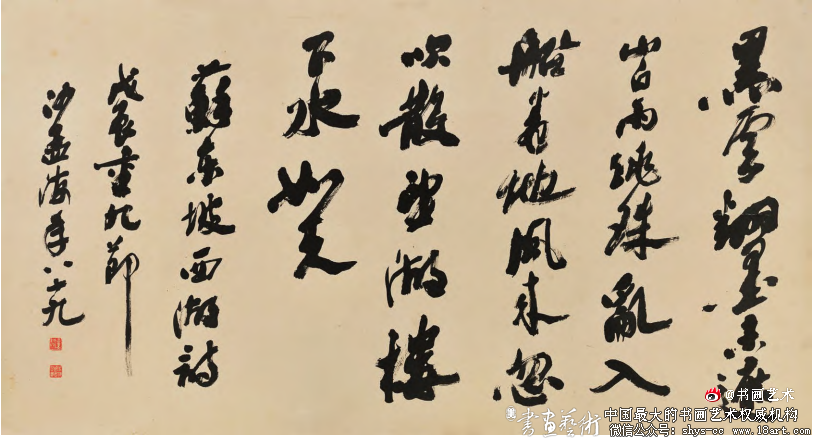 黑雲翻墨未遮
山白雨跳珠亂入
船卷地風来忽
吹散望湖樓
下水如天
蘇東坡西湖詩
戊辰重九節
沙孟海年八十九
@书画艺术
書畫藝術
中国最大的书画艺术权威机构
微信公众号: shys-cc www.18art.com